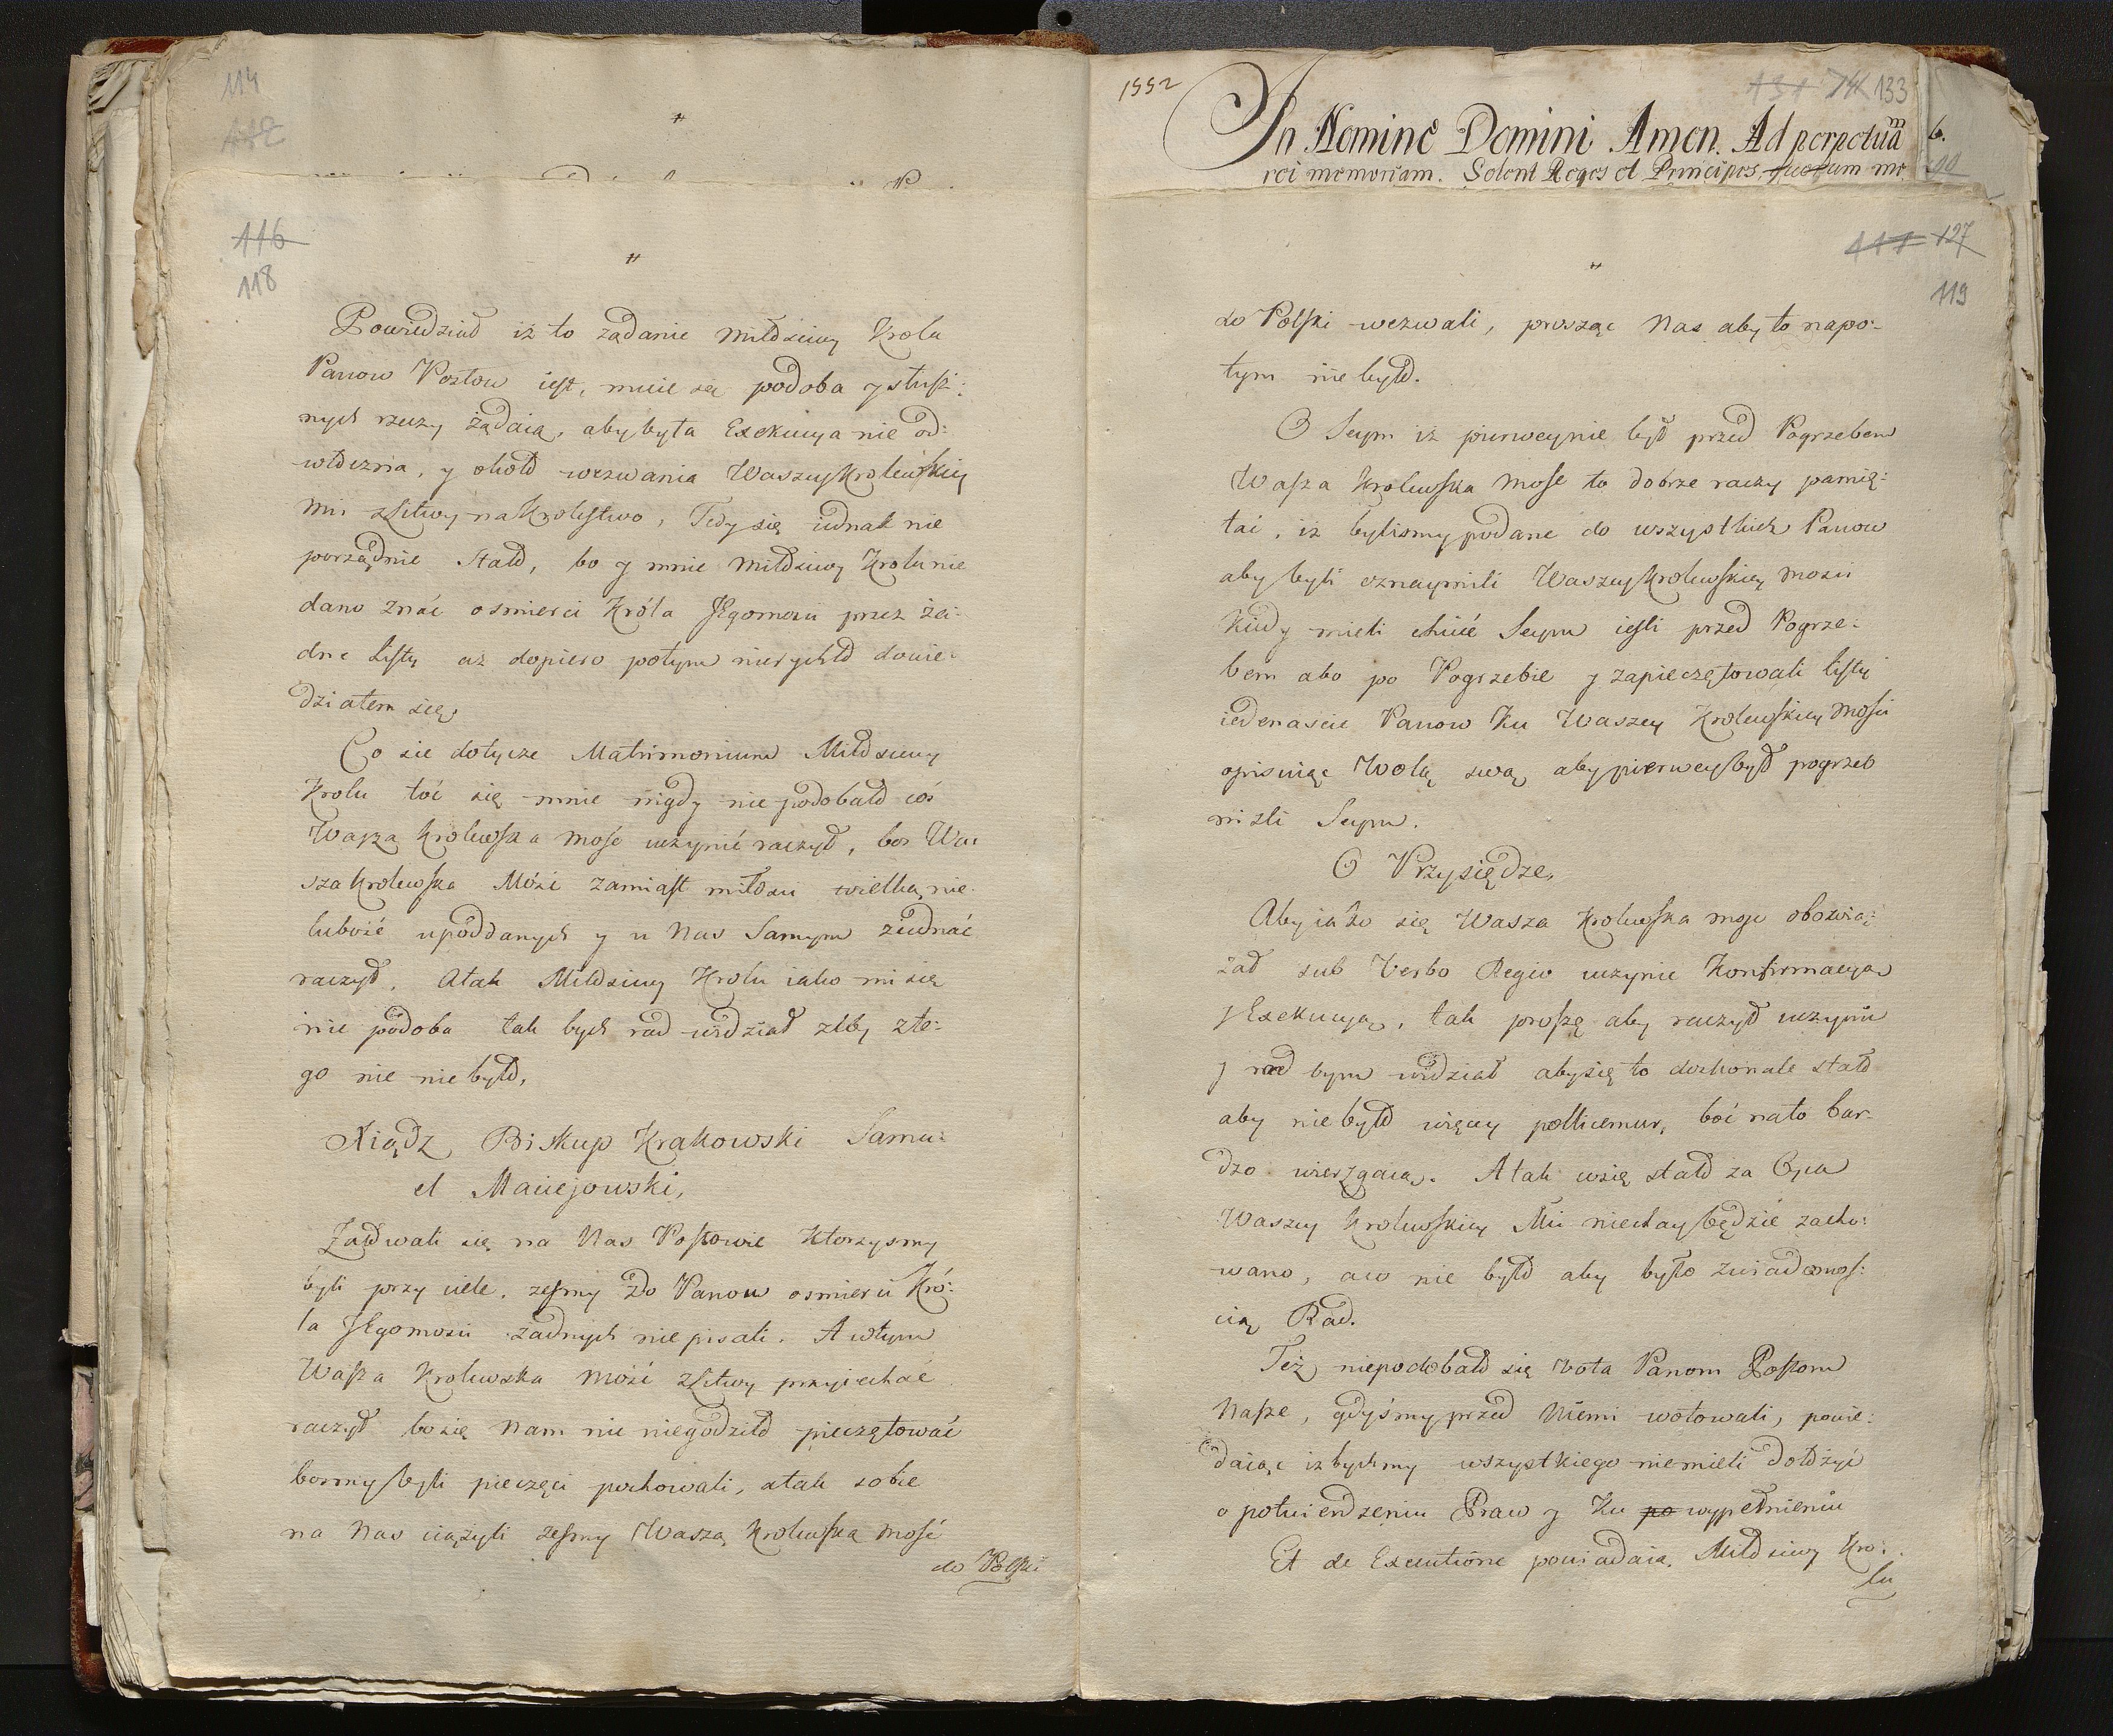 114
112
#
116
118
#
Powiedział iż to żądanie miłościwy Krolu
Panow Posłow iest, mnie się podoba y słusz:
nych rzeczy żądaią, aby była Exekucya nie od:
włoczna, y około wezwania Waszey Krolewskiey
Mci z Litwy na Krolestwo, Tedy się iednak nie
porządnie Stało, bo y mnie miłościwy Krolu nie
dano znać o smierci Króla JEgomosci przez ża:
dne Listy aż dopiero potym nierychło dowie:
działem się.
Co sie dotycze Matrimonium Miłosciwy
Krolu toć się mnie nigdy nie podobało coś
Wasza Krolewska Mosc uczynić raczył, bos Wa:
sza Krolewska Mość zamiast miłosci wielką nie
lubość u poddanych y u Nas Samym ziednać
raczył. A tak Miłosciwy Krolu iako mi się
nie podoba tak bych rad widział żeby złe:
go nie nie było,
Xiądz Biskup Krakowski Samu:
el Maciejowski,
Załowali się na Nas Posłowie Ktorzysmy
byli przy ciele, zesmy do Panow o smierci Kró:
la JEgomosci żadnych nie pisali. A wtym
Wasza Krolewska Mość z Litwy przyiechać
raczył bo się Nam nie niegodziło pieczętować
bosmy byli pieczęci pochowali, a tak sobie
na Nas ciążyli zesmy Waszą Krolewską Mość
do Polski
1552
131 74 133
In Nomine Domini Amen. Ad perpetuam
rei memoriam. Solent Reges et Principes, quorum me
6.
90
111 127
119
"
do Polski wezwali, prosząc Nas aby to napo:
tym nie było.
O Seym iż pierwey nie był przed Pogrzebem
Wasza Krolewska Mosc to dobrze raczy pamię:
tać, iż bylismy podane do wszystkich Panow
aby byli oznaymili Waszey Krolewskiey Mosci
Kiedy mieli chcieć Seym iesli przed Pogrze:
bem abo po Pogrzebie y zapieczętowali listy
iedenascie Panow Ku Waszey Krolewskiey Mosci
opisuiąc Wolą swą aby pierwey był pogrzeb
nizli Seym.
O Przysiędze,
Aby iako się Wasza Krolewska Mosc obowią:
zał sub Verbo Regio uczynic Konfirmacyą
y Exekucyą, tak proszę aby raczył uczynić
y rad bym widział aby się to doskonale stało
aby nie było więcey pollicemur, boć na to bar:
dzo wierzgaią. A tak co się stało za Oyca
Waszey Krolewskiey Mci niechay będzie zacho:
wano, a co nie było aby było z wiadomos:
cią Rad.
Też niepodobało się vota Panom Posłom
Nasze, gdyśmy przed Niemi wotowali, powie:
daiąc iż bychmy wszystkiego niemieli dołożyć
o potwierdzeniu Praw y Ku po wypełnieniu
Et de Executione powiadaią. Miłosciwy Kro:
lu